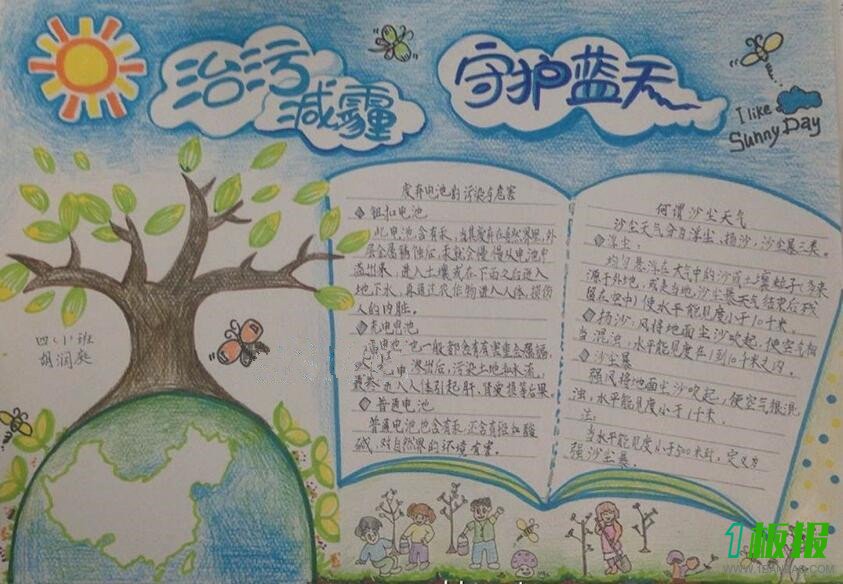 治污
减霾
守护蓝天
I like
Sunny Day
废弃电池的污染与危害
钮扣电池
此电池含有汞，当其废弃在自然界里，外
层金属锈蚀后，汞就会慢慢从电池中
溢出来，进入土壤或在下雨之后进入
地下水，再通过农作物进入人体，损伤
人的内脏。
充电电池
也一般都含有有害重金属镉，
深出后，污染土地和水流，
最终进入人体引起肝、肾受损等后果
普通电池
普通电池也含有汞，还含有锰和酸
碱，对自然界的环境有害。
何谓沙尘天气
沙尘天气分为浮尘，扬沙，沙尘暴三类。
浮尘：
均匀悬浮在大气中的沙或土壤粒子（多来
源于外地，或是当地沙尘暴天气结束后残
留在空中）使水平能见度小于10千米。
扬沙：风将地面尘沙吹起，使空气相
当混浊，水平能见度在1到10千米之内。
沙尘暴
强风将地面尘沙吹起，使空气很混
浊，水平能见度小于1千米。
注：
当水平能见度小于500米时，定义为
强沙尘暴。
四(1)班
胡润庭
1板报
WWW.1BANBAO.COM